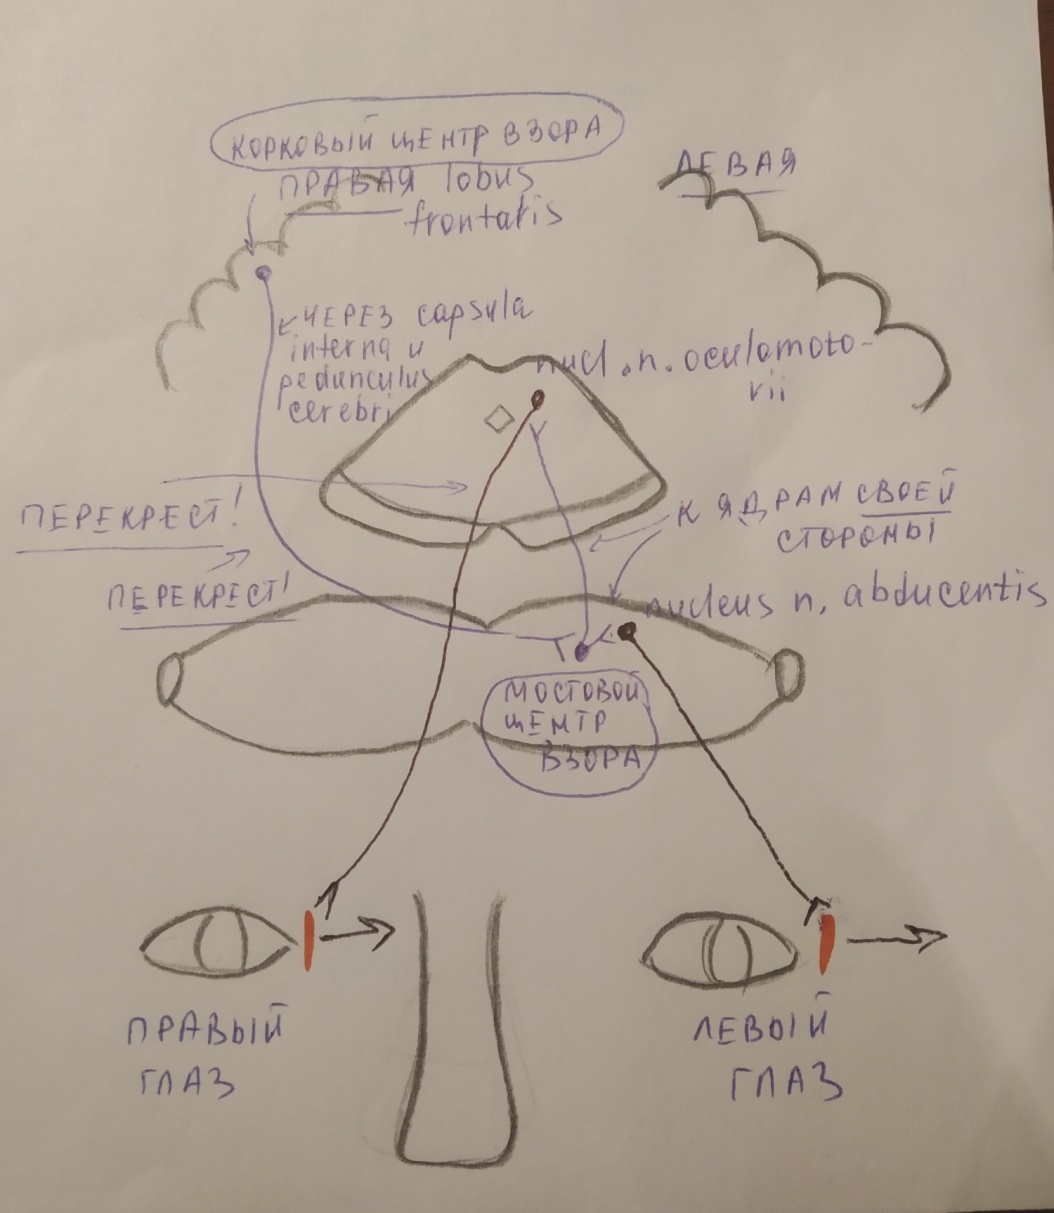 КОРКОВЫЙ ЦЕНТР ВЗОРА
ПРАВАЯ lobus
frontalis
ЛЕВАЯ
ЧЕРЕЗ capsula
interna и
pedunculus
cerebri
nucl. n. oculomoto-
rii
ПЕРЕКРЕСТ!
К ЯДРАМ СВОЕЙ
СТОРОНЫ
ПЕРЕКРЕСТ!
nucleus n. abducentis
МОСТОВОЙ
ЦЕНТР
ВЗОРА
ПРАВЫЙ
ГЛАЗ
ЛЕВЫЙ
ГЛАЗ